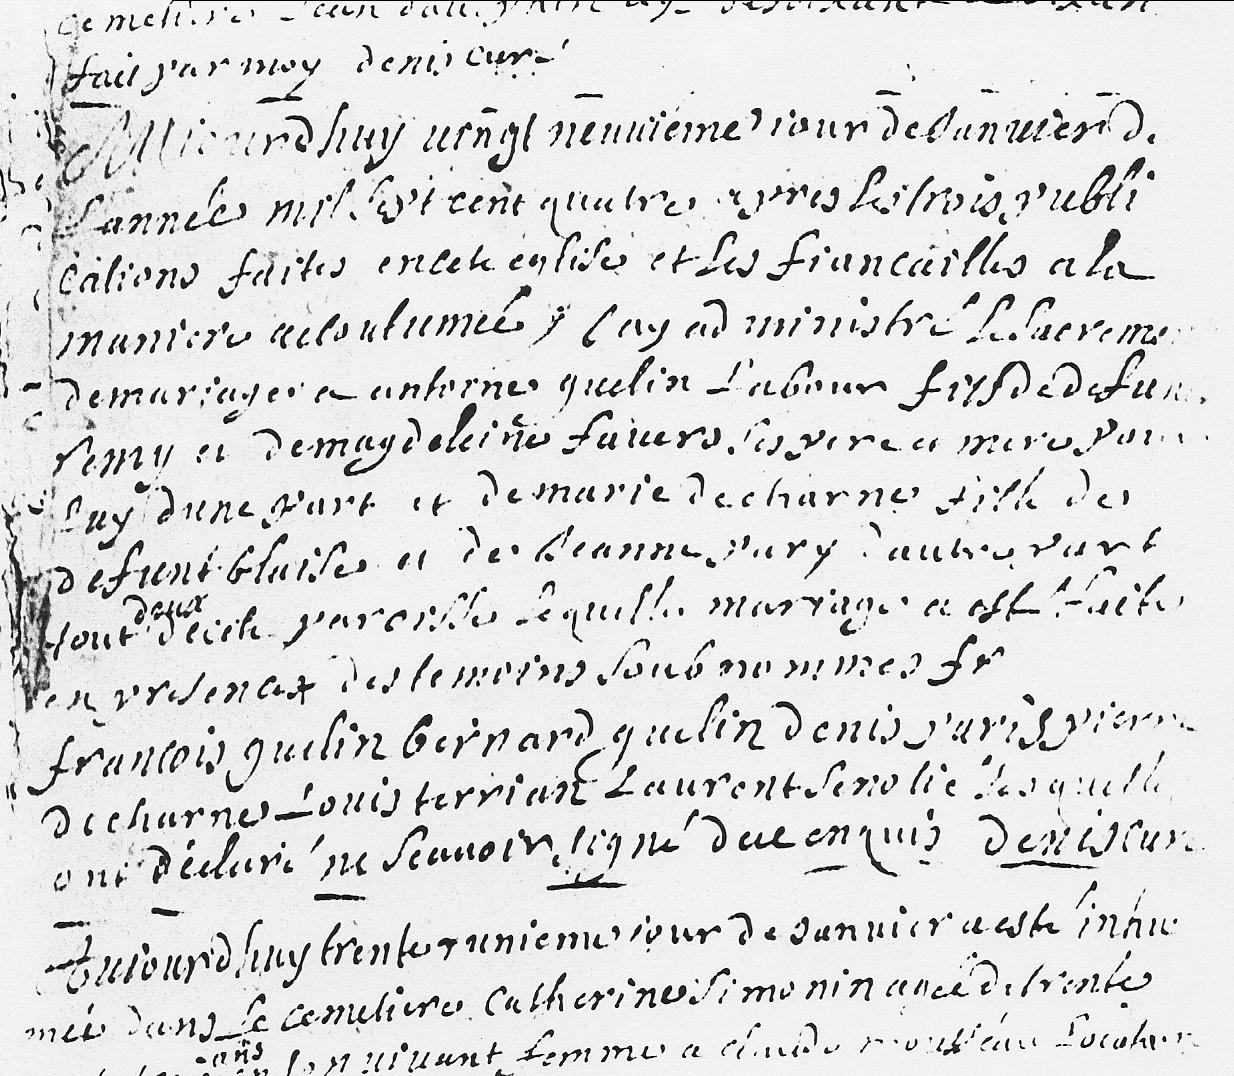 cemetiere Jean
fait par moy denis curé
Aujourdhuy vingt neuvieme jour de Janvier de
Lannée mil sept cent quatre apres les trois publi
cations faites en cete eglise et les fiançailles a la
maniere acoutumeé j ay administré le sacreme
de mariage a antoine quelin Labour fils de defun
remy et de magdeleine favero ses pere et mere pour
luy dune part et de marie decharne fille de
defunt blaise et de Jeanne pary dautre part
tout deux de cete paroisse lequelle marriage a esté faite
en presence des temoins soub nommes fr
francois quelin bernard quelin denis paris pierre
decharne Louis terrian Laurent Senolié lesquelle
ont déclaré ne scavoir signé de ce enquis denis cure
Aujourdhuy trente unieme jour de Janvier a esté inhu
mée dans le cemetiere catherine simonin ageé de trente
ans en son vivant femme a claude